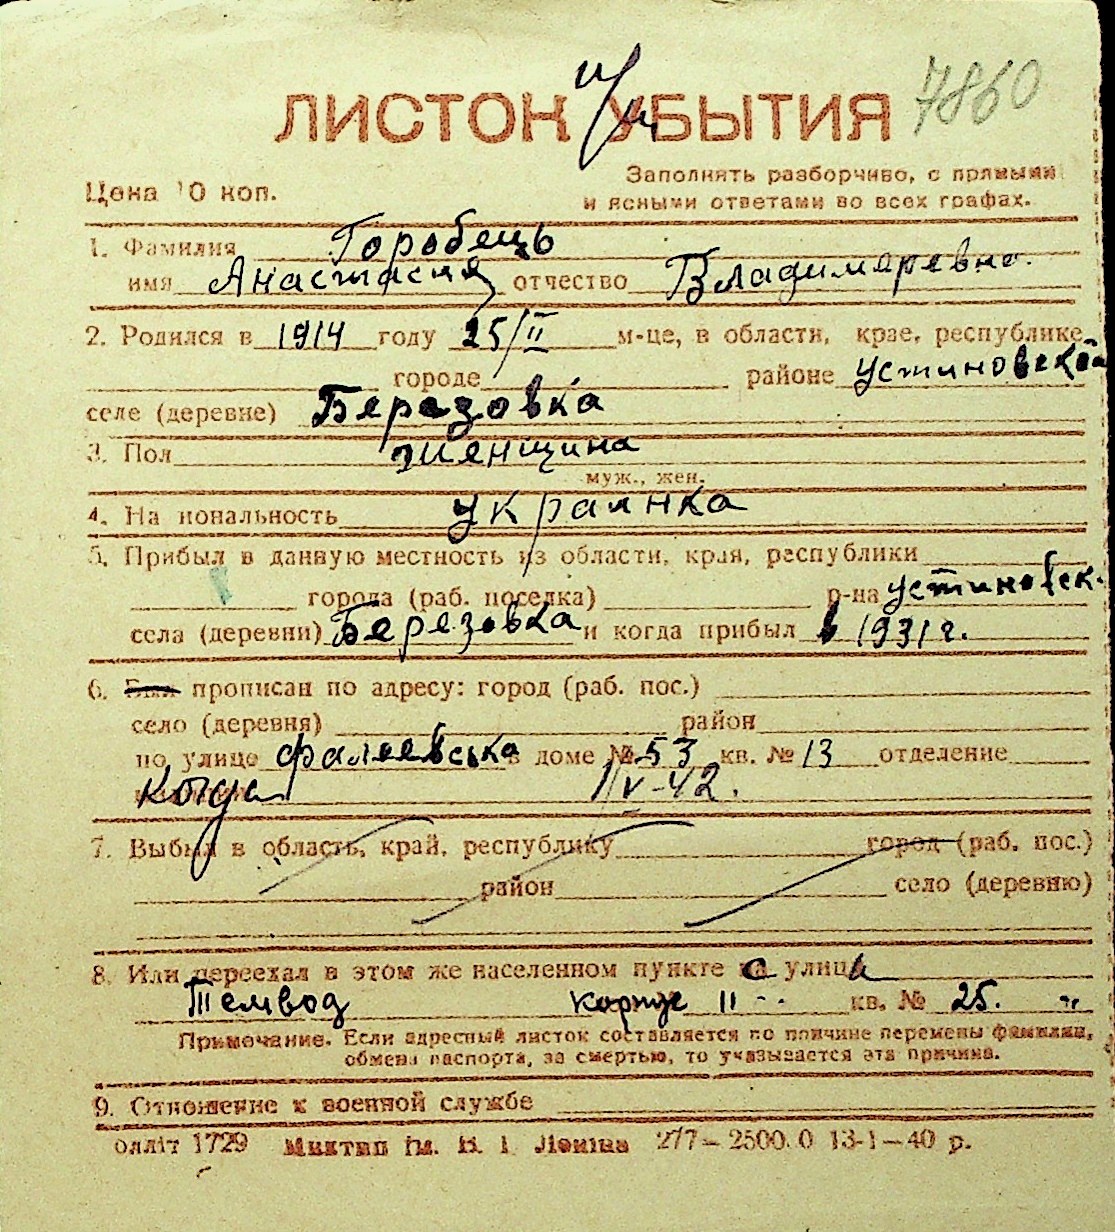 7860
ЛИСТОК УБЫТИЯ
Цена 10 коп.
Заполнять разборчиво, с прямыми
и ясными ответами во всех графах.
1. Фамилия Горобець
имя Анастасия отчество Владимеревна.
2. Родился в 1914 году 25/II м-це, в области, крае, республике
городе районе Устиновской
селе (деревне) Березовка
3. Пол женщина
муж., жен.
4. На иональность украинка
5. Прибыл в данную местность из области, края, республики
города (раб. поселка) р-на Устиновск.
села (деревни) Березовка и когда прибыл в 1931 г.
6. Был прописан по адресу: город (раб. пос.)
село (деревня) район
по улице Фалеевська в доме № 53 кв. № 13 отделение
когда IV-42.
7. Выбыл в область, край, республику город (раб. пос.)
район село (деревню)
8. Или переехал в этом же населенном пункте с улицы
Темвод корпус 11 кв. № 25.
Примечание. Если адресный листок составляется по причине перемены фамилии,
обмена паспорта, за смертью, то указывается эта причина.
9. Отношение к военной службе
олліт 1729 Миктип ім. В. І. Леніна 277—2500.0 13-1—40 р.